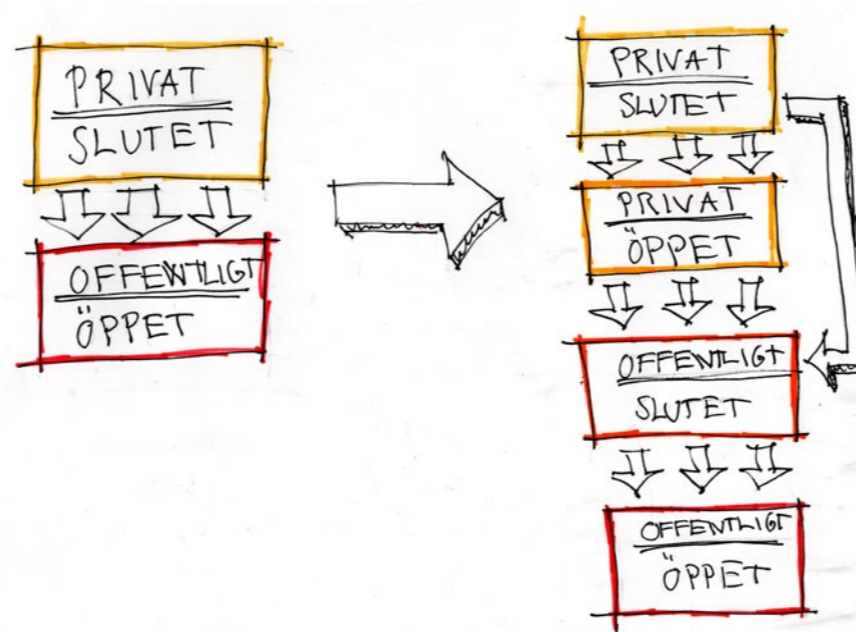 PRIVAT
SLUTET
OFFENTLIGT
ÖPPET
PRIVAT
SLUTET
PRIVAT
ÖPPET
OFFENTLIGT
SLUTET
OFFENTLIGT
ÖPPET